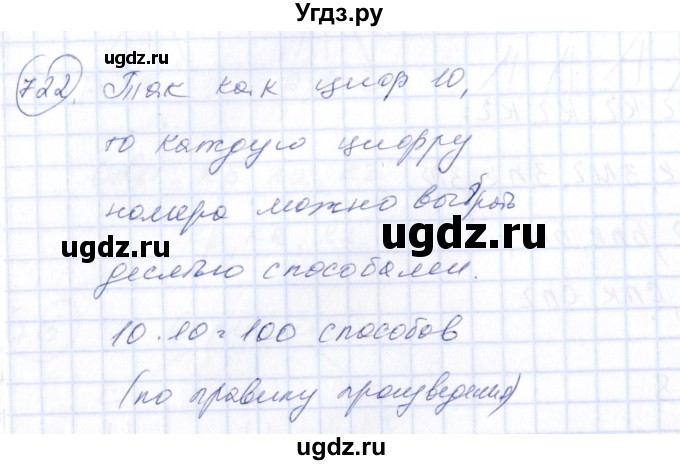 Угдз.ру
722. Так как цифр 10,
то каждую цифру
номера можно выбрать
десятью способами.
10 · 10 = 100 способов
(по правилу произведения)
ugdz.ru
ugdz.ru
ugdz.ru
ugdz.ru
ugdz.ru
ugdz.ru
ugdz.ru